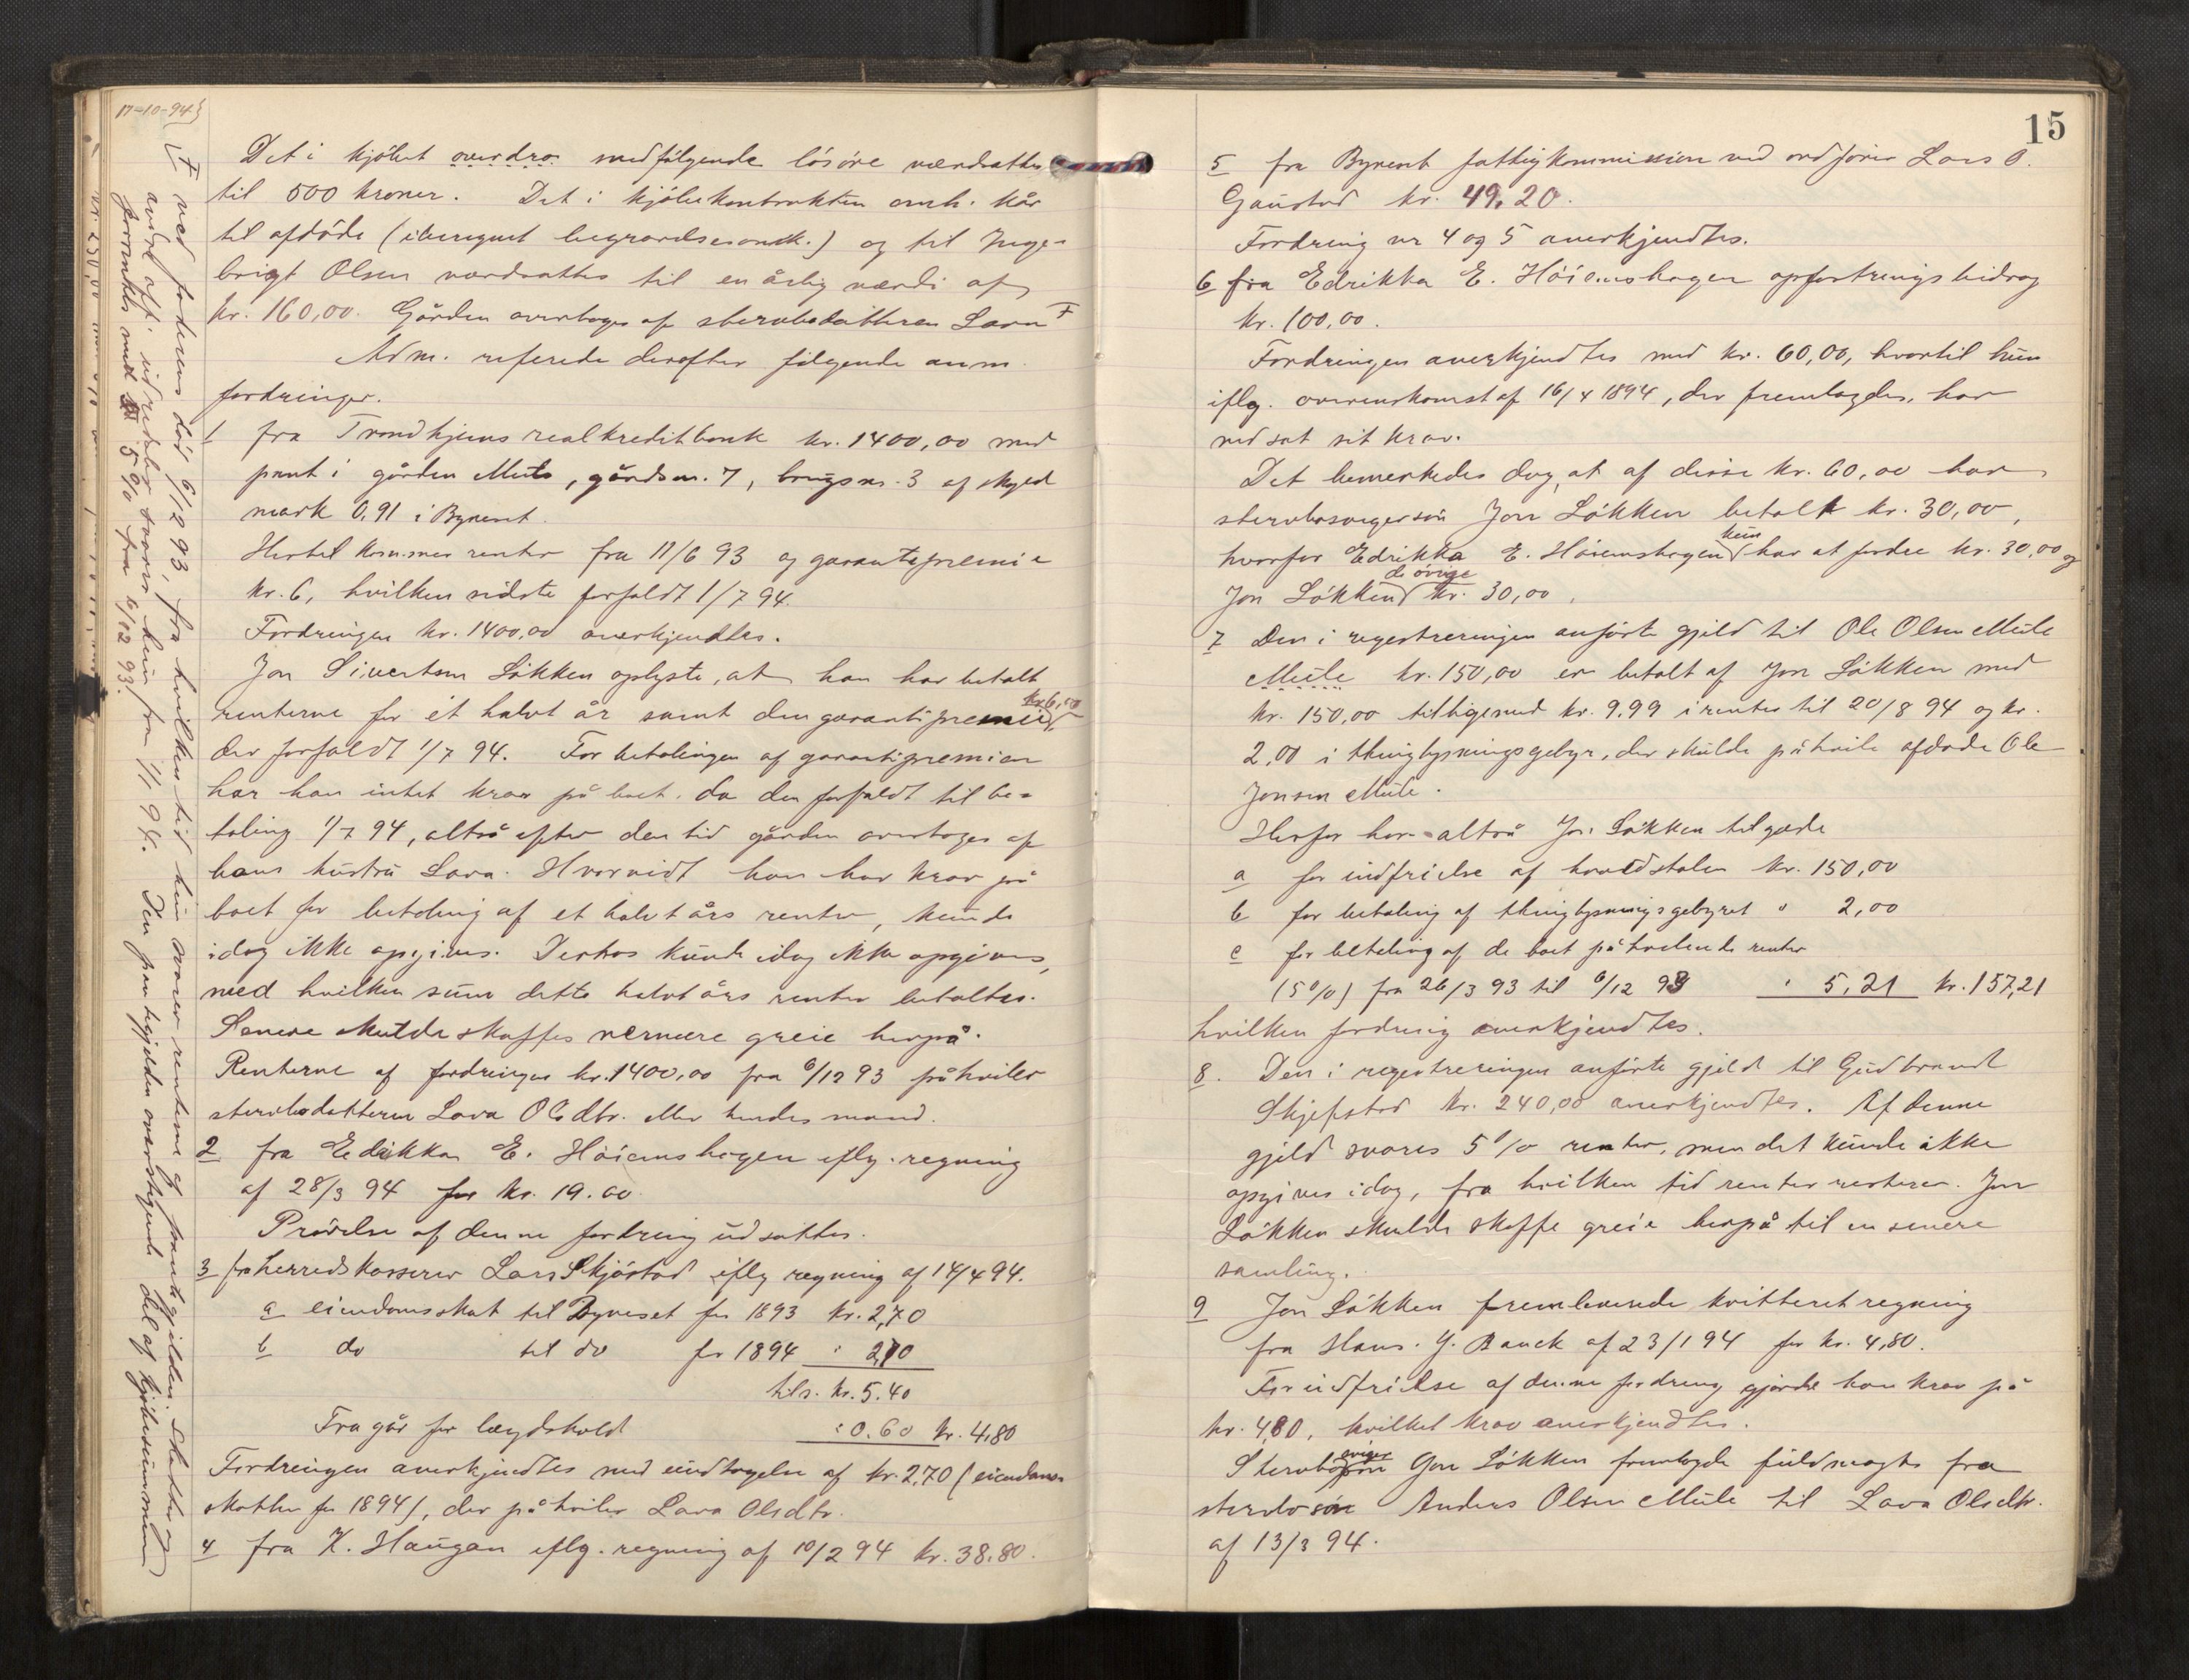 17-10-94
Det i kjöbet overdro. medfölgende lösöre værdsattes
til 500 kroner. Det i kjöbekontrakten omh. kår
til afdöde (iberegnet begravelsesomk.) og til Inge-
brigt Olsen værdsattes til en årlig værdi af
kr. 160,00. Gården overtoges af stervbodatteren Lava F
Adm. referede derefter fölgende anm.
fordringer.
1 fra Trondhjems realkreditbank kr. 1400,00 med
pant i gården Mule, gårdsnr. 7, brugsnr. 3 af skyld
mark 0,91 i Bynesset.
Hertil kommer renter fra 11/6 93 og garantipremie
kr. 6, hvilken sidste forfaldt 1/7 94.
Fordringen kr. 1400,00 anerkjendtes.
Jon Sivertsen Lökken oplyste, at han har betalt
renterne for ét halvt år samt den garantipremie kr 6,00
der forfaldt 1/7 94. For betalingen af garantipremien
har han intet krav på boet, da den forfaldt til be=
taling 1/7 94, altså efter den tid gården overtoges af
hans hustru Lava. Hvorvidt han har krav på
boet for betaling af et halvt års renter, kunde
idag ikke opgives. Derhos kunde idag ikke opgives,
med hvilken sum dette halvt års renter betaltes.
Senere skulde skaffes nærmere greie herpå.
Renterne af fordringen kr. 1400,00 fra 6/12 93 påhviler
stervbodatteren Lava Olsdtr. eller hendes mand.
2 fra Edrikka E. Höiemshagen iflg. regning
af 28/3 94 for kr. 19.00.
Prövelse af denne fordring udsattes.
3 fra herredskasserer Lars Skjöstad iflg regning af 14/4 94.
a eiendomsskat til Byneset for 1893 kr. 2,70
b do til do for 1894 " 2,70
tils. kr. 5.40
Fragår for lægdshold " 0.60 kr. 4,80
Fordringen anerkjendtes med undtagelse af kr. 2,70 (eiendoms-
skatten for 1894), der påhviler Lava Olsdtr.
4 fra K. Haugan iflg. regning af 10/2 94 kr. 38.80.
F ved faderens död 6/12 93, fra hvilken tid hun svarer renterne af pantegjælden. Skatter og
andre afg. udredes svares hun fra 1/1 94. Den pantegjælden overstigende del af kjöbesummen
forrentes med 5 % fra 6/12 93.
15
5 fra Byneset fattigkommission ved ordförer Lars O.
Gaustad kr. 49.20.
Fordring nr 4 og 5 anerkjendtes.
6 fra Edrikka E. Höiemshagen opfostringsbidrag
kr. 100,00.
Fordringen anerkjendtes med kr. 60,00, hvortil hun
iflg. overenskomst af 16/4 1894, der fremlagdes, har
nedsat sit krav.
Det bemerkedes dog, at af disse kr. 60,00 har
stervbosvigersön Jon Lökken betalt kr. 30,00,
hvorfor Edrikka E. Höiemshagen kun har at fordre kr. 30,00 og
Jon Lökken de övrige kr. 30,00.
7 Den i registreringen anförte gjeld til Ole Olsen Mule
Mule kr. 150,00 er betalt af Jon Lökken med
kr. 150,00 tilligemed kr. 9,99 i renter til 20/8 94 og kr.
2,00 i thinglysningsgebyr, der skulde påhvile afdøde Ole
Jonsen Mule.
Herfor har altså Jon Lökken tilgode
a for indfrielse af hovedstolen kr. 150,00
b for betaling af thinglysningsgebyret " 2,00
c for betaling af de boet påhvilende renter
(5%) fra 26/3 93 til 6/12 93 " 5,21 kr. 157,21
hvilken fordring anerkjendtes.
8. Den i registreringen anförte gjeld til Gudbrandt
Skjefstad kr. 240,00 anerkjendtes. Af denne
gjeld svares 5% renter, men det kunde ikke
opgives idag, fra hvilken tid renter resterer. Jon
Lökken skulde skaffe greie herpå til en senere
samling.
9 Jon Lökken fremleverede kvitteret regning
fra Hans. J. Bauck af 23/1 94 for kr. 4,80.
For indfrielse af denne fordring gjorde han krav på
kr. 4,80, hvilket krav anerkjendtes.
Stervbosvigersön Jon Lökken fremlagde fuldmagt fra
stervbosön Anders Olsen Mule til Lava Olsdtr.
af 13/3 94.